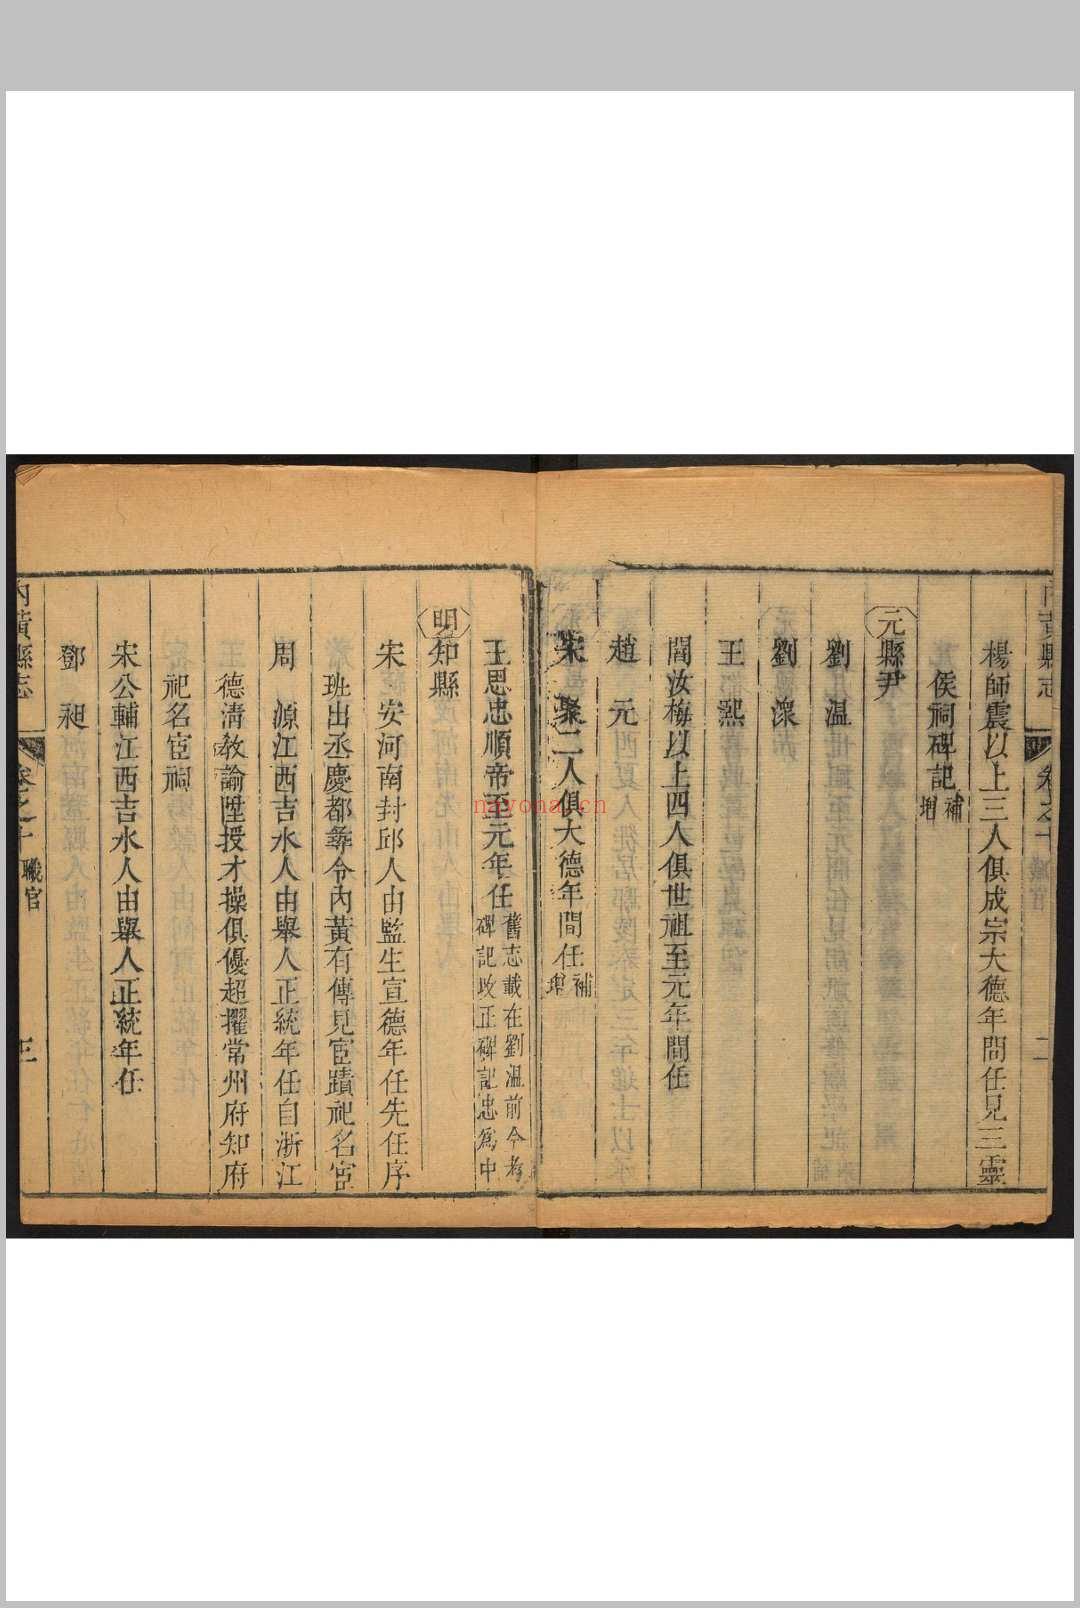 楊師震以上三人俱成宗大德年間任見三靈
侯祠碑記補增
元縣尹
劉溫
劉淙
王熙
閻汝梅以上四人俱世祖至元年間任
趙元
宋聚二人俱大德年間任補增
王思忠順帝至元年任舊志載在劉溫前今考碑記改正碑記忠為中
明知縣
宋安河南封邱人由監生宣德年任先任序
班出丞慶都彝令內黃有傳見宦蹟祀名宦
周源江西吉水人由舉人正統年任自浙江
德清教諭陞授才操俱優超擢常州府知府
祀名宦祠
宋公輔江西吉水人由舉人正統年任
鄧昶
內黃縣志
卷之十
職官
三
nayona.cn